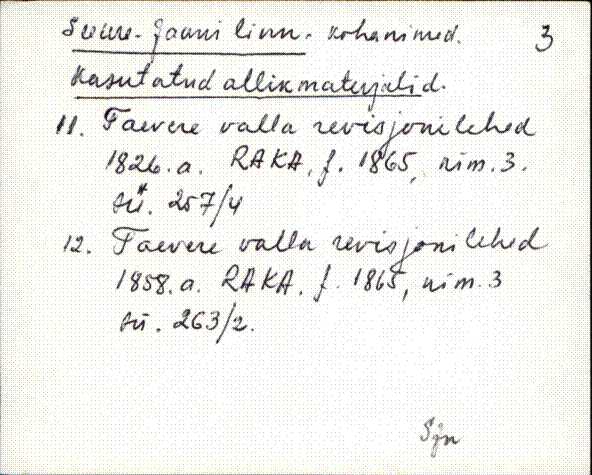 Suure-Jaani linn. kohanimed. 3
Kasutatud allikmaterjalid.
11. Taevere valla revisjonilehed
1826. a. RAKA, f. 1865, nim. 3.
sü. 257/4
12. Taevere valla revisjonilehed
1858. a. RAKA. f. 1865, nim. 3
sü. 263/2.
SJn